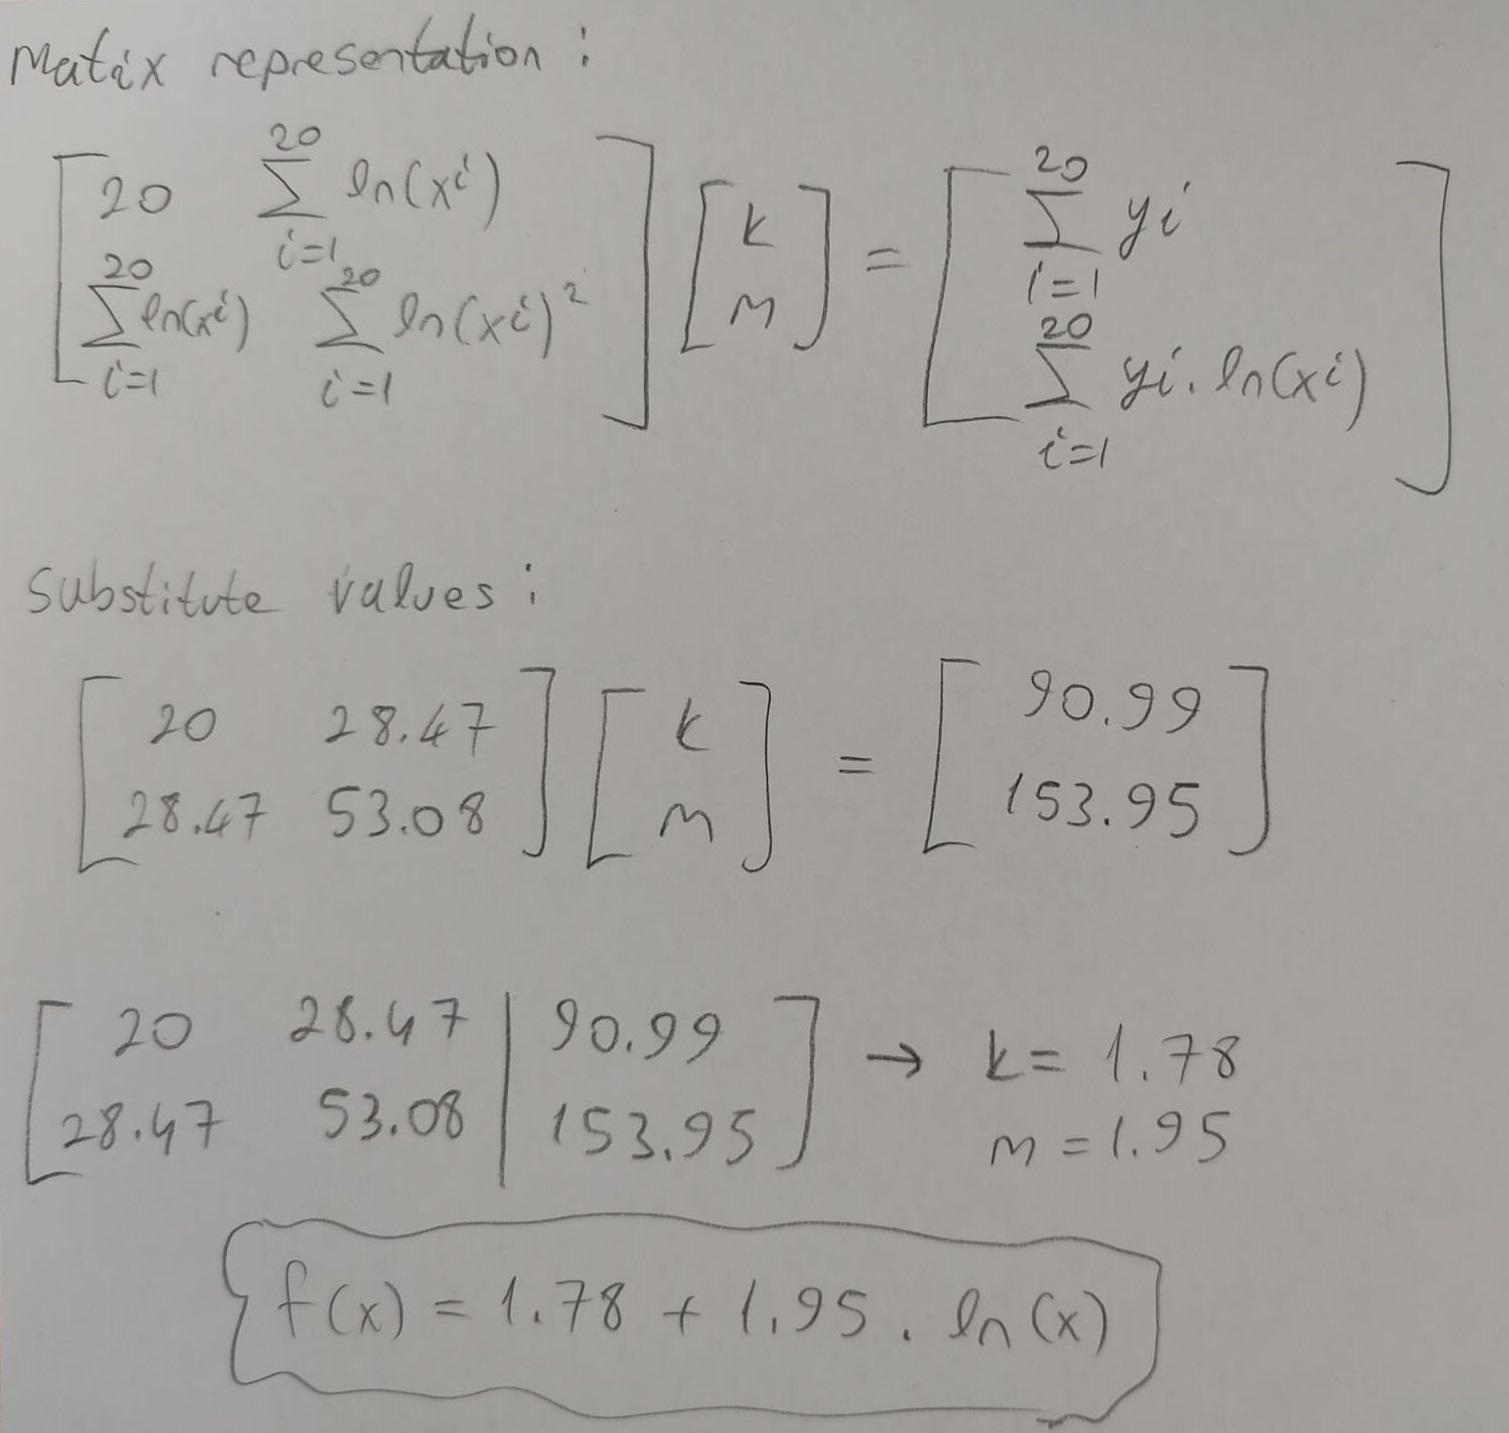 Matrix representation :
[ 20 20∑i=1 ln(xi) ; 20∑i=1 ln(xi) 20∑i=1 ln(xi)² ] [ k ; m ] = [ 20∑i=1 yi ; 20∑i=1 yi. ln(xi) ]
Substitute values :
[ 20 28.47 ; 28.47 53.08 ] [ k ; m ] = [ 90.99 ; 153.95 ]
[ 20 28.47 | 90.99 ; 28.47 53.08 | 153.95 ] → k = 1.78
m = 1.95
f(x) = 1.78 + 1.95 . ln(x)